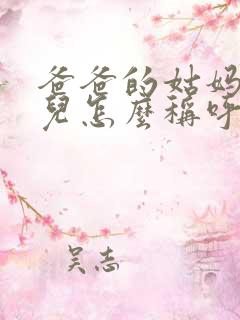 爸爸的姑妈
兒怎麼稱呼
吴志